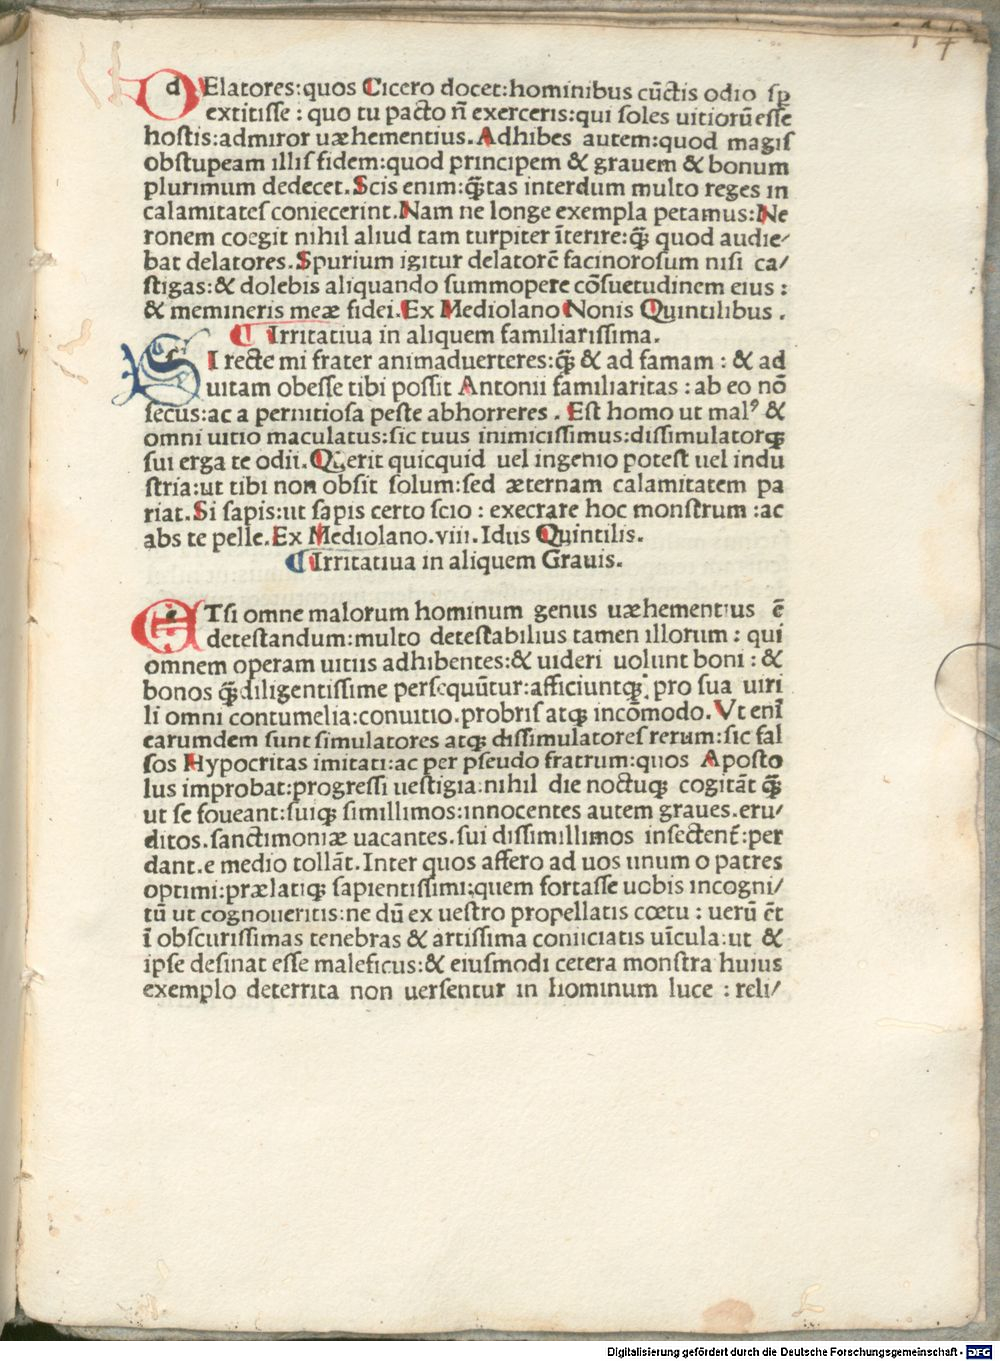 14
dElatores:quos Cicero docet:hominibus cūctis odio sꝑ
extitisse : quo tu pacto n̄ exerceris:qui soles uitiorū esse
hostis:admiror uæhementius.Adhibes autem:quod magis
obstupeam illis fidem:quod principem & grauem & bonum
plurimum dedecet.Scis enim:q̃tas interdum multo reges in
calamitates coniecerint.Nam ne longe exempla petamus:Ne
ronem coegit nihil aliud tam turpiter īterire:q̃ quod audie/
bat delatores.Spurium igitur delatorē facinorosum nisi ca/
stigas:& dolebis aliquando summopere cōsuetudinem eius :
& memineris meæ fidei.Ex Mediolano Nonis Quintilibus .
¶ Irritatiua in aliquem familiarissima.
SI recte mi frater animaduerteres:q̃ & ad famam : & ad
uitam obesse tibi possit Antonii familiaritas : ab eo nō
secus:ac a pernitiosa peste abhorreres . Est homo ut malꝰ &
omni uitio maculatus:sic tuus inimicissimus:dissimulatorqꝫ
sui erga te odii.Quęrit quicquid uel ingenio potest uel indu
stria:ut tibi non obsit solum:sed æternam calamitatem pa
riat.Si sapis:ut sapis certo scio : execrare hoc monstrum :ac
abs te pelle.Ex Mediolano.viii.Idus Quintilis.
¶Irritatiua in aliquem Grauis.
eTsi omne malorum hominum genus uæhementius ē
detestandum:multo detestabilius tamen illorum : qui
omnem operam uitiis adhibentes:& uideri uolunt boni : &
bonos q̃ diligentissime persequūtur:afficiuntqꝫ pro sua uiri
li omni contumelia:conuitio.probris atqꝫ incōmodo.Vt enī
earumdem sunt simulatores atqꝫ dissimulatores rerum:sic fal
sos Hypocritas imitati:ac per pseudo fratrum:quos Aposto
lus improbat:progressi uestigia:nihil die noctuqꝫ cogitāt q̃
ut se foueant:suiqꝫ simillimos:innocentes autem graues.eru/
ditos.sanctimoniæ uacantes.sui dissimillimos insectent̃:per
dant.e medio tollāt.Inter quos affero ad uos unum o patres
optimi:prælatiqꝫ sapientissimi:quem fortasse uobis incogni/
tū ut cognoueritis:ne dū ex uestro propellatis cœtu : uerū ēt
ī obscurissimas tenebras & artissima coniiciatis uīcula:ut &
ipse desinat esse maleficus:& eiusmodi cetera monstra huius
exemplo deterrita non uersentur in hominum luce : reli/
Digitalisierung gefördert durch die Deutsche Forschungsgemeinschaft - DFG